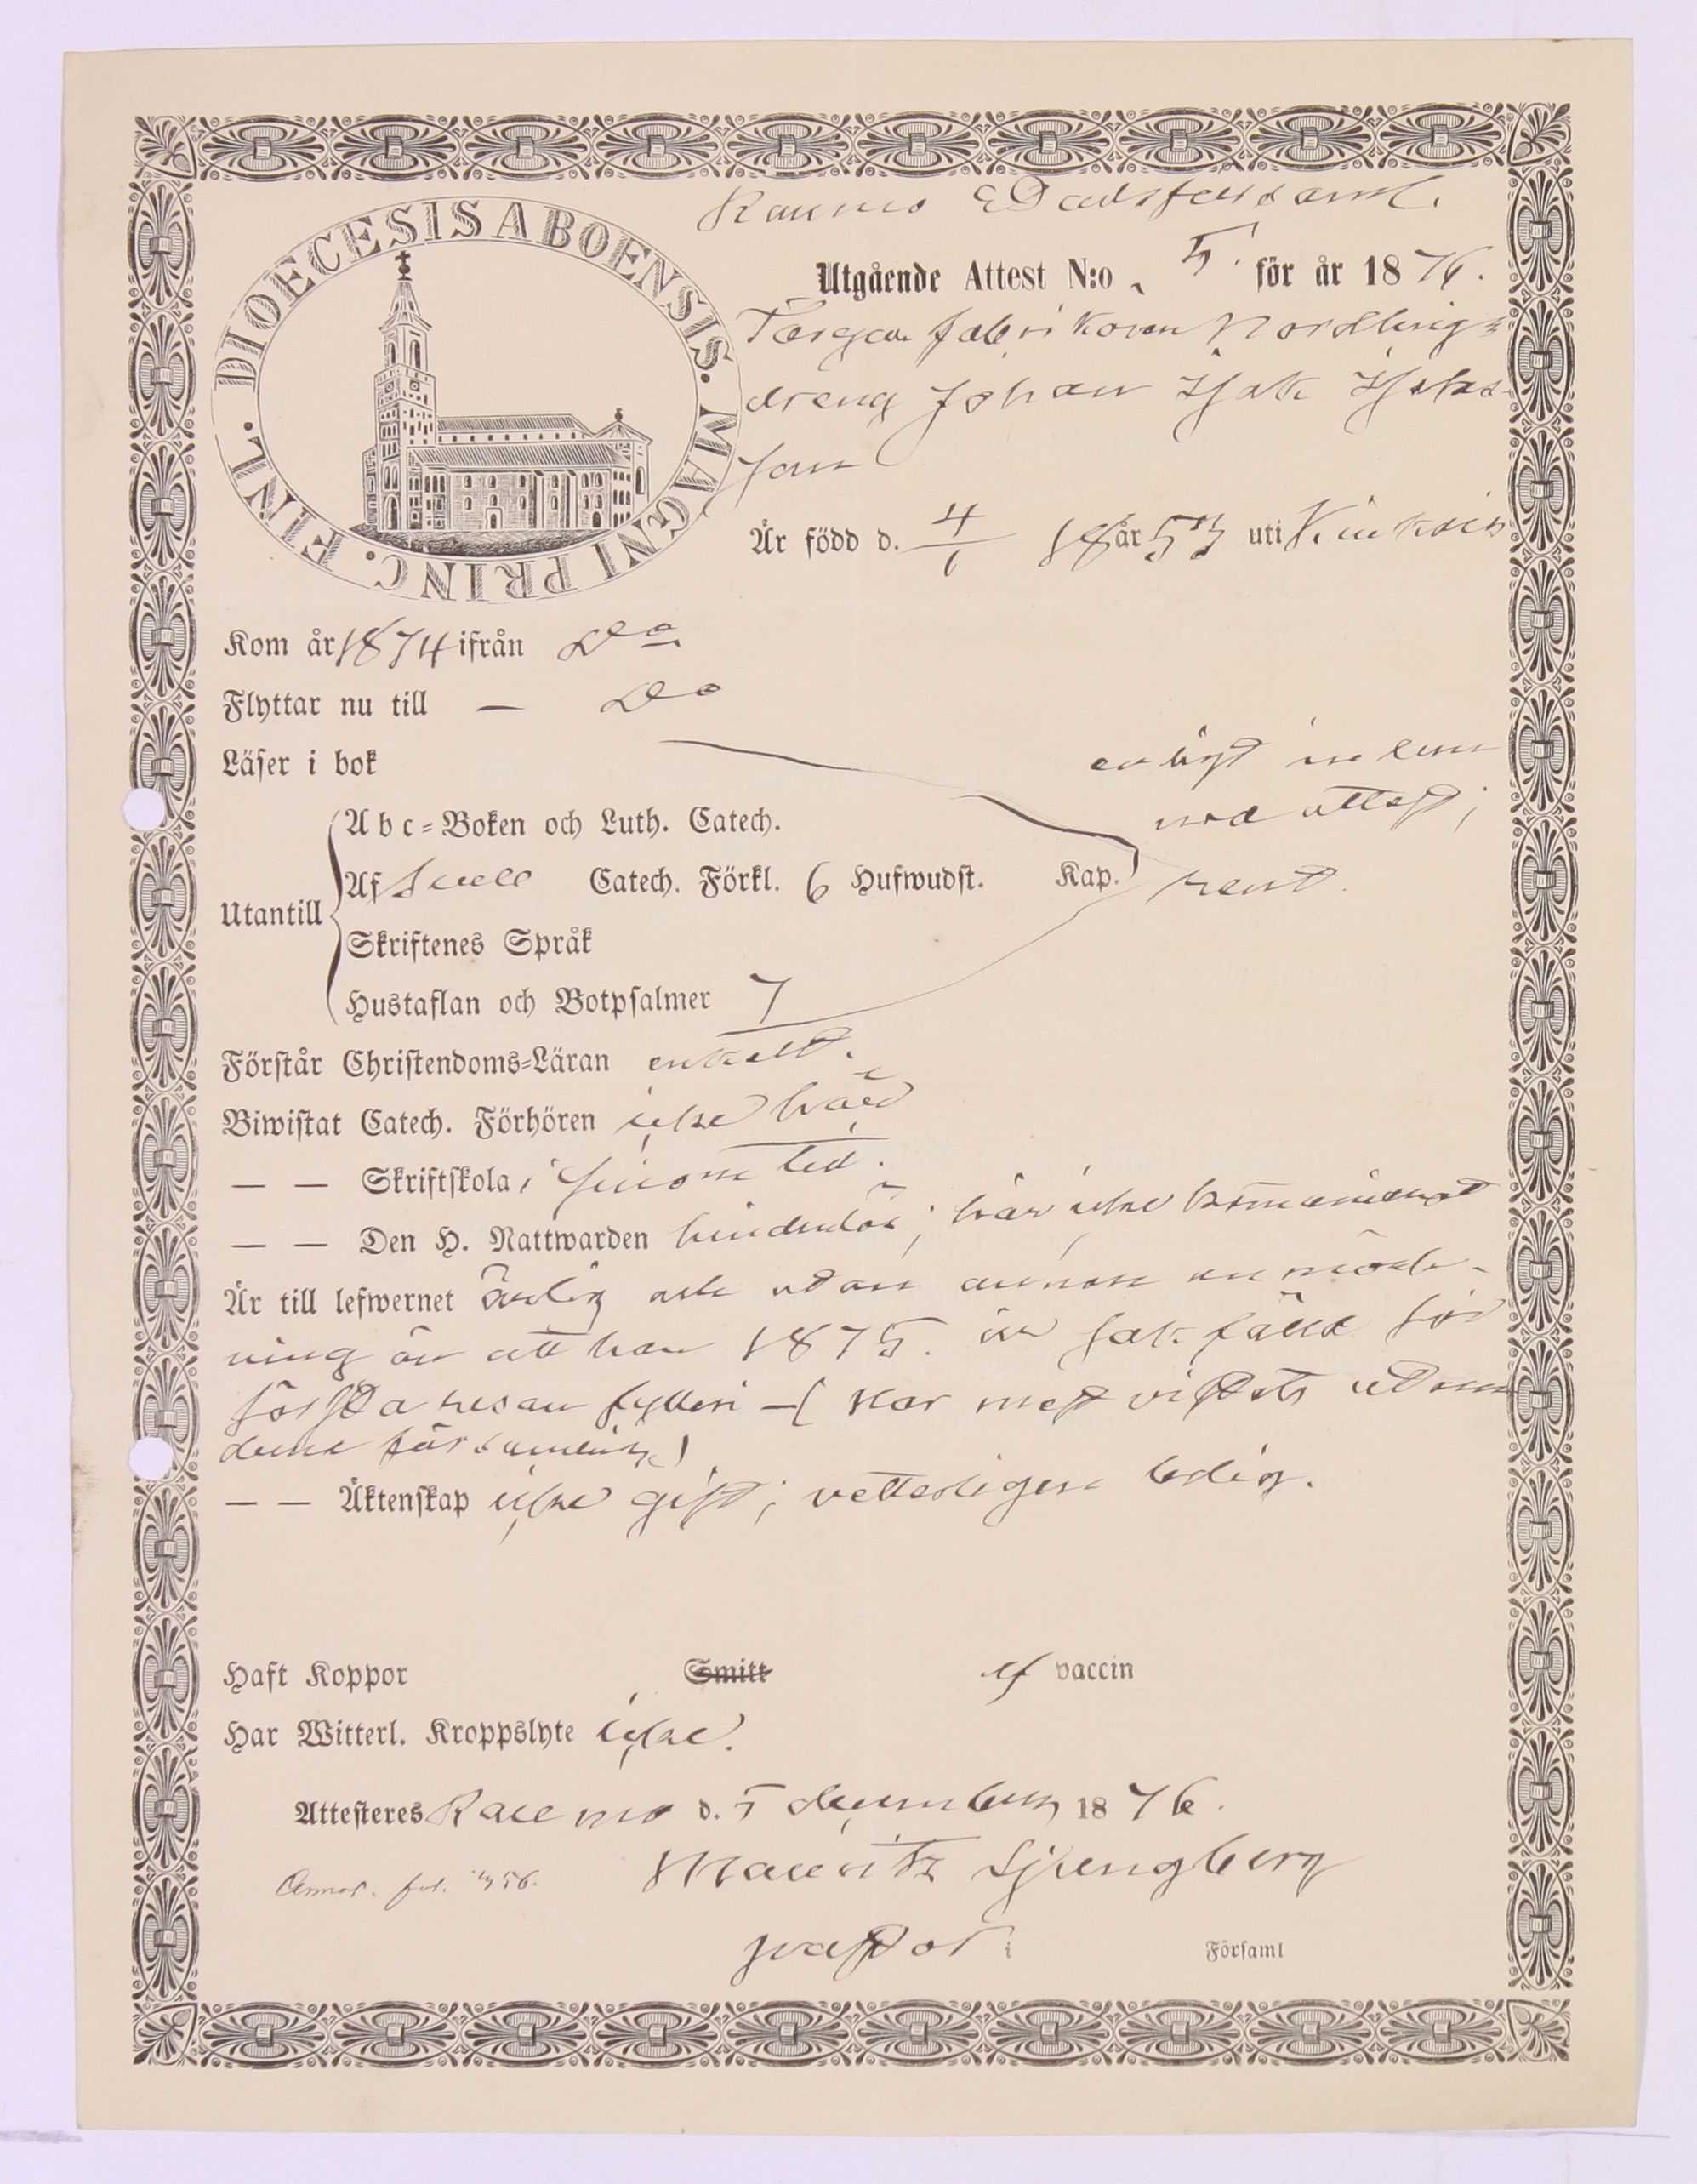 Raumo Stadsförsaml.
DIOECESIS ABOENSIS. MAGNI PRINC. FINL.
Utgående Attest N:o 5. för år 1876.
Färgerifabrikören Nordlings
dräng Johan Isak Isaks-
son
Är född d. 4/1 18år53 uti Kiukais
Kom år 1874 ifrån Do
Flyttar nu till — Do
Läser i bok enligt inlem-
nad attest;
Abc-Boken och Luth. Catech.
Utantill Af Svebil Catech. Förkl. 6 Hufwudst. Kap. rent.
Skriftenes Språk
Hustaflan och Botpsalmer 7
Förstår Christendoms-Läran enkelt.
Biwistat Catech. Förhören icke här
— — Skriftskola, genom led.
— — Den H. Nattwarden hinderlös; här icke kommunicerat
Är till lefwernet ärlig och utan annan anmärk-
ning än att han 1875. är sakfälld för
första resan fylleri — (har mest vistats utom
denna församling)
— — Äktenskap icke gift; vetterligen ledig.
Haft Koppor Smitt af vaccin
Har Witterl. Kroppslyte icke.
Attesteres Raumo d. 5 december 1876.
Annot. fol. 356. Mauritz Ljungberg
pastor i Församl